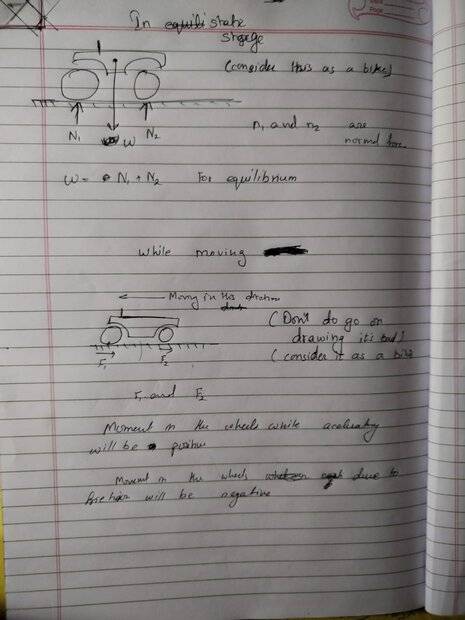 In equili state
stage
(consider this as a bike)
N1 N2
W
n1 and n2 are
normal force
W = N1 + N2 For equilibrium
While moving
Moving in this direction
(Don't do go on
drawing its bad)
(consider it as a bike
F1 F2
F1 and F2
Moment in the wheels while
will be positive
Moment in the wheels due to
friction will be negative